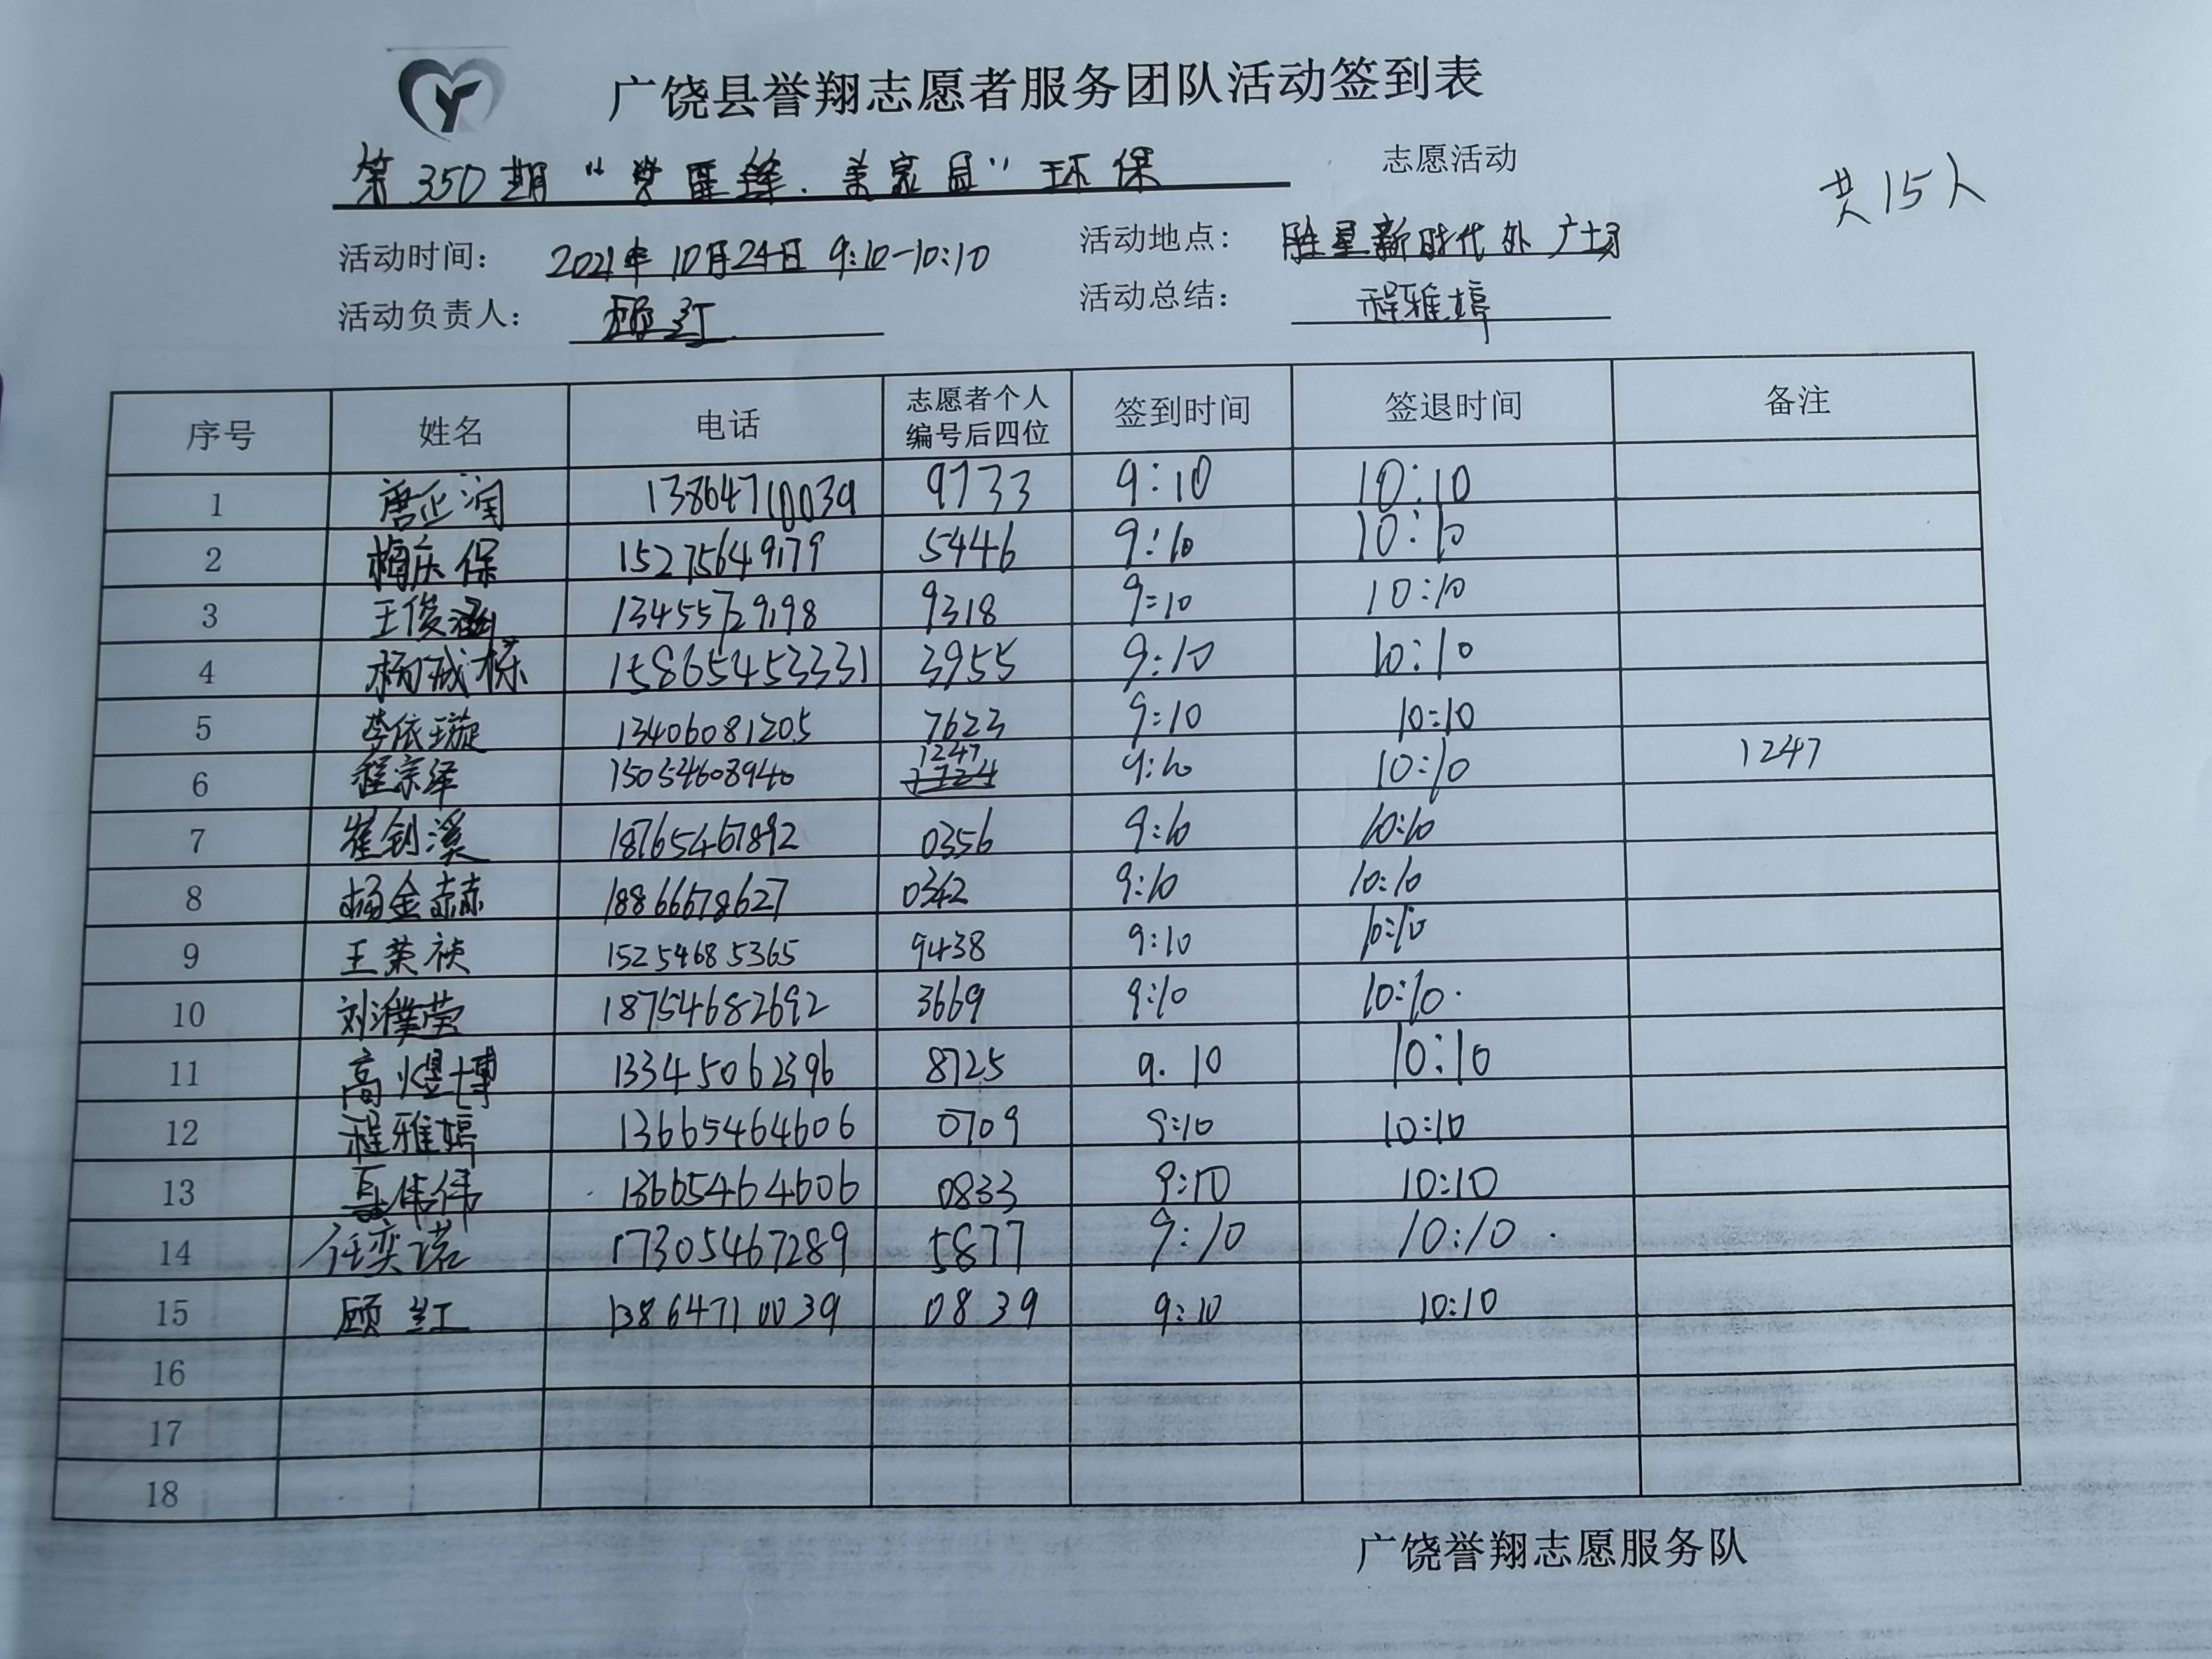 广饶县誉翔志愿者服务团队活动签到表
第350期“学雷锋.美家园”环保 志愿活动
共15人
活动时间: 2021年10月24日 9:10-10:10 活动地点: 胜星新时代外广场
活动负责人: 顾红 活动总结: 程雅婷
序号 姓名 电话 志愿者个人编号后四位 签到时间 签退时间 备注
1 唐正润 13864710039 9733 9:10 10:10
2 梅庆保 15275649179 5446 9:10 10:10
3 王俊涵 13455729198 9318 9:10 10:10
4 杨成栋 15865453331 3955 9:10 10:10
5 李依璇 13406081205 7623 9:10 10:10
6 程宗绎 15054608940 1247 9:10 10:10 1247
7 崔钊溪 18765467892 0356 9:10 10:10
8 杨金赫 18866678627 0342 9:10 10:10
9 王荣祯 15254685365 9438 9:10 10:10
10 刘濮莹 18754682692 3669 9:10 10:10.
11 高煜博 13345062396 8725 9.10 10:10
12 程雅婷 13665464606 0709 9:10 10:10
13 伟伟 13665464606 0833 9:10 10:10
14 任奕诺 17305467289 5877 9:10 10:10
15 顾红 13864710039 0839 9:10 10:10
16
17
18
广饶誉翔志愿服务队